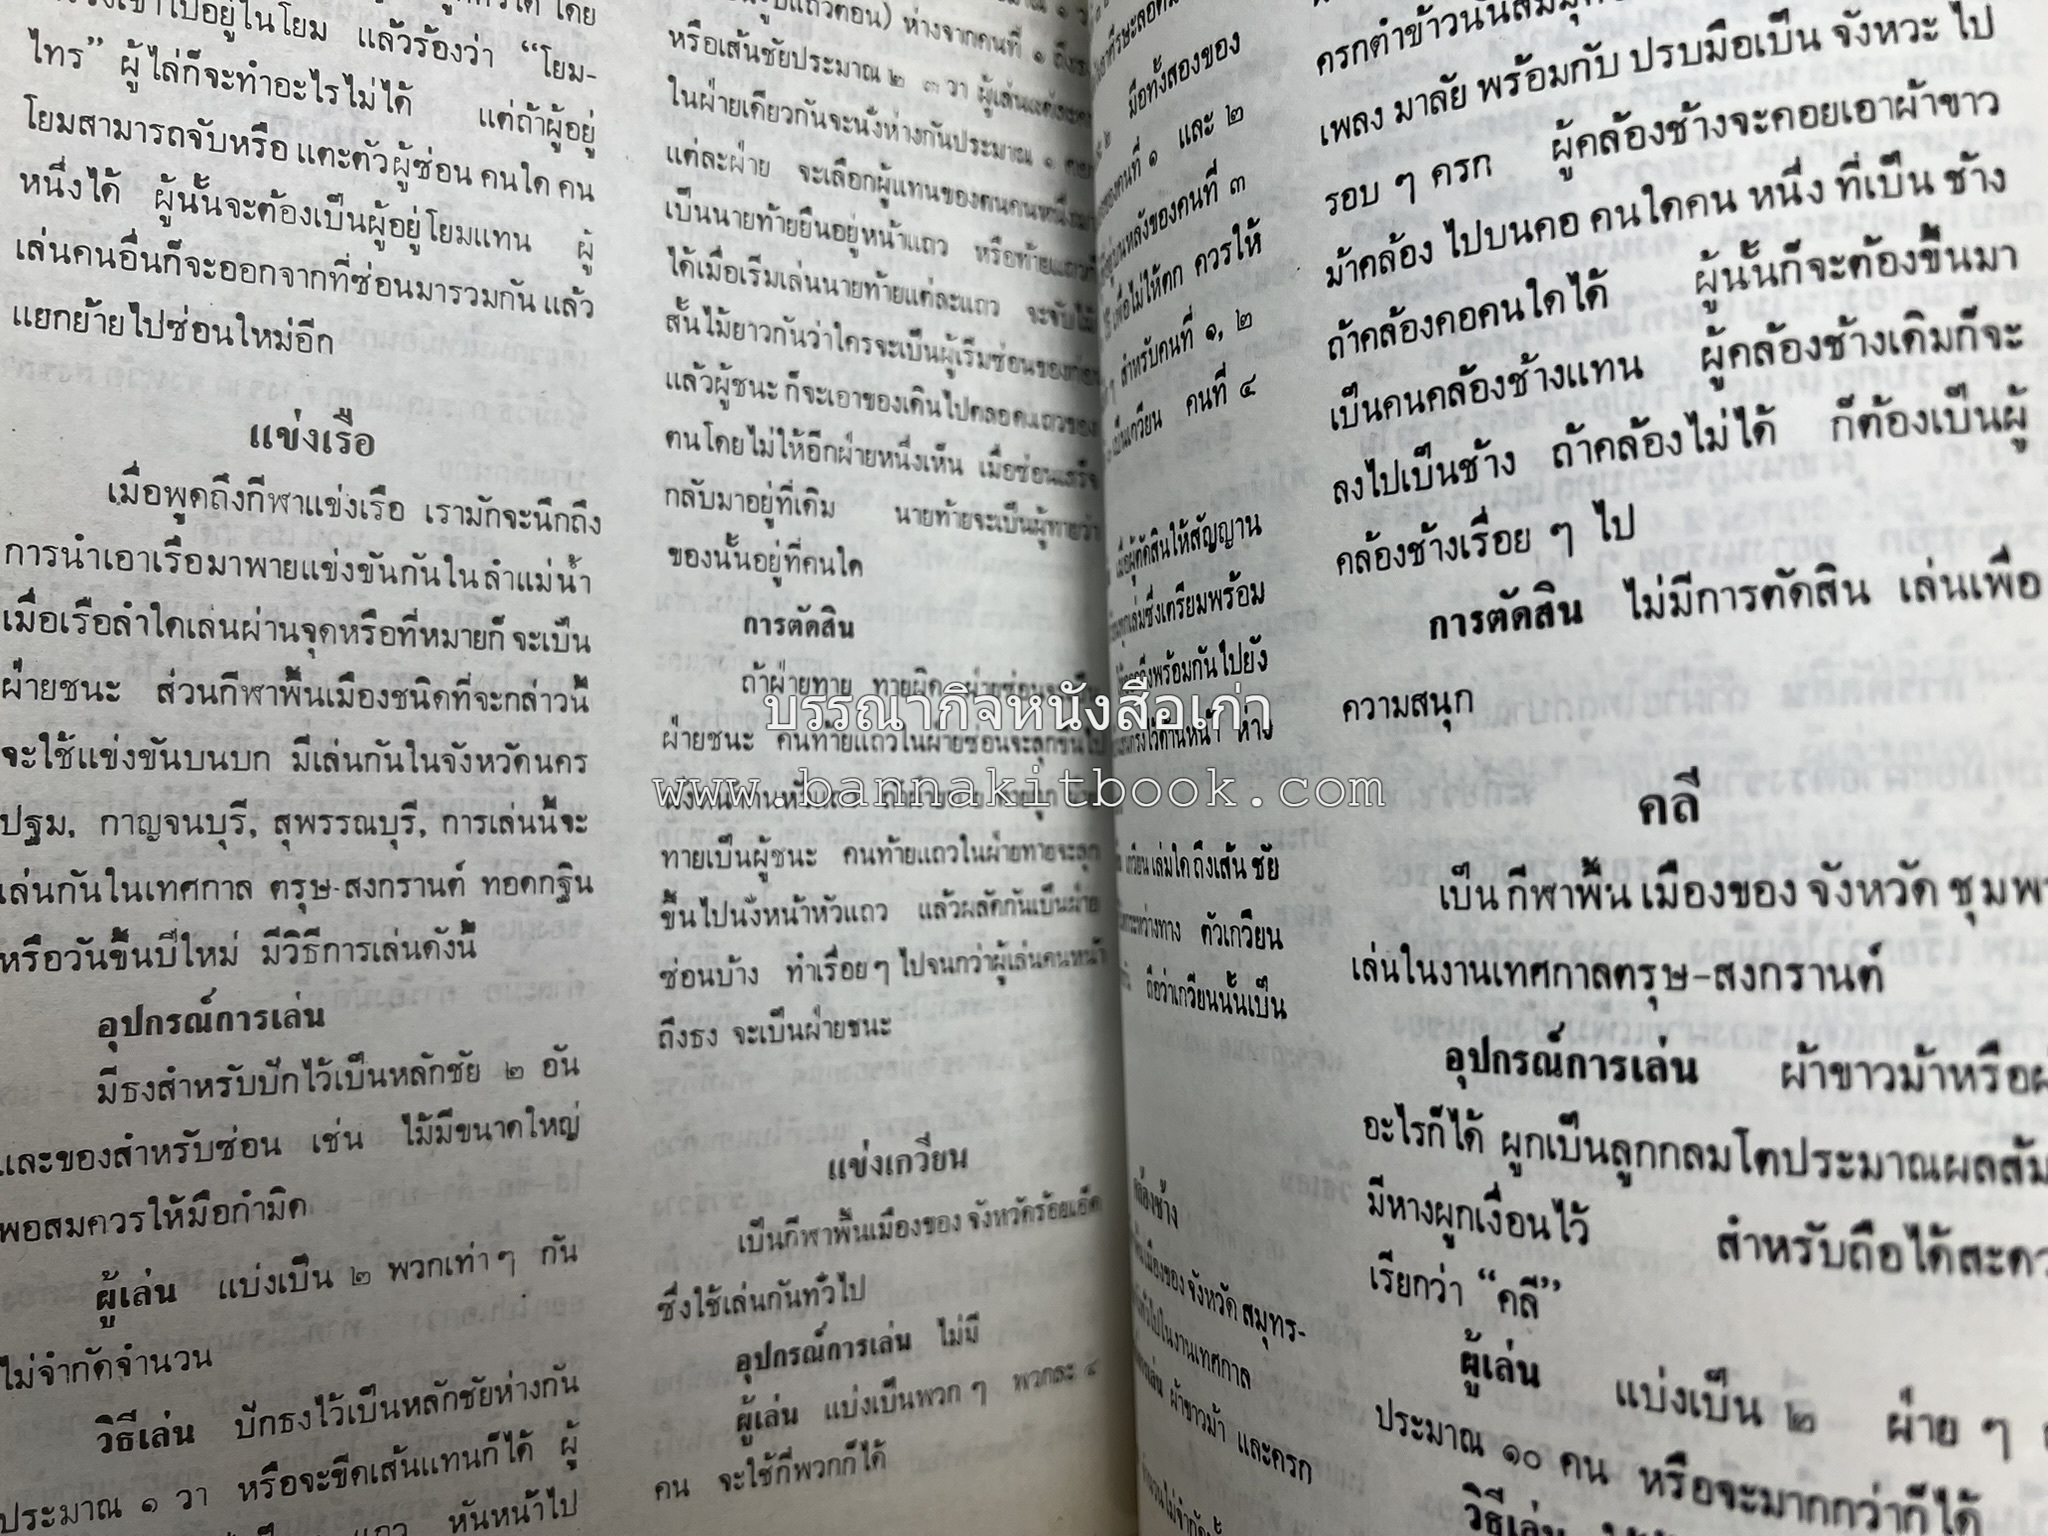 เข้าไปอยู่ในโยม แล้วร้องว่า “โยม-
ไทร” ผู้ไล่ก็จะทำอะไรไม่ได้ แต่ถ้าผู้อยู่
โยมสามารถจับหรือแตะตัวผู้ซ่อน คนใด คน
หนึ่งได้ ผู้นั้นจะต้องเป็นผู้อยู่โยมแทน ผู้
เล่นคนอื่นก็จะออกจากที่ซ่อนมารวมกัน แล้ว
แยกย้ายไปซ่อนใหม่อีก
แข่งเรือ
เมื่อพูดถึงกีฬาแข่งเรือ เรามักจะนึกถึง
การนำเอาเรือมาพายแข่งขันกันใน ลำแม่น้ำ
เมื่อเรือลำใดเล่นผ่านจุดหรือที่หมายก็ จะเป็น
ฝ่ายชนะ ส่วนกีฬาพื้นเมืองชนิดที่จะกล่าวนี้
จะใช้แข่งขันบนบก มีเล่นกันในจังหวัดนคร
ปฐม, กาญจนบุรี, สุพรรณบุรี, การเล่นนี้จะ
เล่นกันในเทศกาล ตรุษ-สงกรานต์ ทอดกฐิน
หรือวันขึ้นปีใหม่ มีวิธีการเล่นดังนี้
อุปกรณ์การเล่น
มีธงสำหรับปักไว้เป็นหลักชัย ๒ อัน
และของสำหรับซ่อน เช่น ไม้มีขนาดใหญ่
พอสมควรให้มือกำมิด
ผู้เล่น แบ่งเป็น ๒ พวกเท่า ๆ กัน
ไม่จำกัดจำนวน
วิธีเล่น ปักธงไว้เป็นหลักชัยห่างกัน
ประมาณ ๑ วา หรือจะขีดเส้นแทนก็ได้ ผู้
แถว หันหน้าไป
ห่างจากคนที่ ๑ ถึงธง
หรือเส้นชัยประมาณ ๒ ๓ วา ผู้เล่นแต่ละคน
ในฝ่ายเดียวกันจะนั่งห่างกันประมาณ ๑ ศอก
แต่ละฝ่าย จะเลือกผู้แทนของตนคนหนึ่ง
เป็นนายท้ายยืนอยู่หน้าแถว หรือท้ายแถวก็
ได้เมื่อเริ่มเล่นนายท้ายแต่ละแถว จะจับไม้
สั้นไม้ยาวกันว่าใครจะเป็นผู้เริ่มซ่อนของก่อน
แล้วผู้ชนะ ก็จะเอาของเดินไปตลอดแถวของ
ตนโดยไม่ให้อีกฝ่ายหนึ่งเห็น เมื่อซ่อนเสร็จ
กลับมาอยู่ที่เดิม นายท้ายจะเป็นผู้ทายว่า
ของนั้นอยู่ที่คนใด
การตัดสิน
ถ้าฝ่ายทาย ทายผิด ฝ่ายซ่อน
ฝ่ายชนะ คนท้ายแถวในฝ่ายซ่อนจะลุกขึ้นไป
ทายเป็นผู้ชนะ คนท้ายแถวในฝ่ายทายจะลุก
ขึ้นไปนั่งหน้าหัวแถว แล้วผลัดกันเป็นฝ่าย
ซ่อนบ้าง ทำเรื่อย ๆ ไปจนกว่าผู้เล่นคนหน้า
ถึงธง จะเป็นฝ่ายชนะ
แข่งเกวียน
เป็นกีฬาพื้นเมืองของ จังหวัดร้อยเอ็ด
ซึ่งใช้เล่นกันทั่วไป
อุปกรณ์การเล่น ไม่มี
ผู้เล่น แบ่งเป็นพวก ๆ พวกละ ๔
คน จะใช้กี่พวกก็ได้
มือทั้งสองของ
ของคนที่ ๑ และ ๒
หลังของคนที่ ๓
เพื่อไม่ให้ตก ควรให้
สำหรับคนที่ ๑, ๒
เป็นเกวียน คนที่ ๔
เมื่อผู้ตัดสินให้สัญญาน
ทุกเล่มซึ่งเตรียมพร้อม
พร้อมกันไปยัง
ตรงไว้ด้านหน้า ห่าง
เกวียน เล่มใด ถึงเส้น ชัย
ระหว่างทาง ตัวเกวียน
ถือว่าเกวียนนั้นเป็น
คล้องช้าง
พื้นเมืองของ จังหวัด สมุทร-
ทั่วไปในงานเทศกาล
ผ้าขาวม้า และครก
จำนวนไม่จำกัด
ครกตำข้าวนั้นสมมุติ
เพลง มาลัย พร้อมกับ ปรบมือเป็น จังหวะ ไป
รอบ ๆ ครก ผู้คล้องช้างจะคอยเอาผ้าขาว
ม้าคล้อง ไปบนคอ คนใดคน หนึ่ง ที่เป็น ช้าง
ถ้าคล้องคอคนใดได้ ผู้นั้นก็จะต้องขึ้นมา
เป็นคนคล้องช้างแทน ผู้คล้องช้างเดิมก็จะ
ลงไปเป็นช้าง ถ้าคล้องไม่ได้ ก็ต้องเป็นผู้
คล้องช้างเรื่อย ๆ ไป
การตัดสิน ไม่มีการตัดสิน เล่นเพื่อ
ความสนุก
คลี
เป็น กีฬาพื้น เมืองของ จังหวัด ชุมพ
เล่นในงานเทศกาลตรุษ-สงกรานต์
อุปกรณ์การเล่น ผ้าขาวม้าหรือ
อะไรก็ได้ ผูกเป็นลูกกลมโตประมาณผลส้ม
มีหางผูกเงื่อนไว้ สำหรับถือได้สะดว
เรียกว่า “คลี”
ผู้เล่น แบ่งเป็น ๒ ฝ่าย ๆ
ประมาณ ๑๐ คน หรือจะมากกว่าก็ได้
วิธีเล่น
บรรณากิจหนังสือเก่า
www.bannakitbook.com